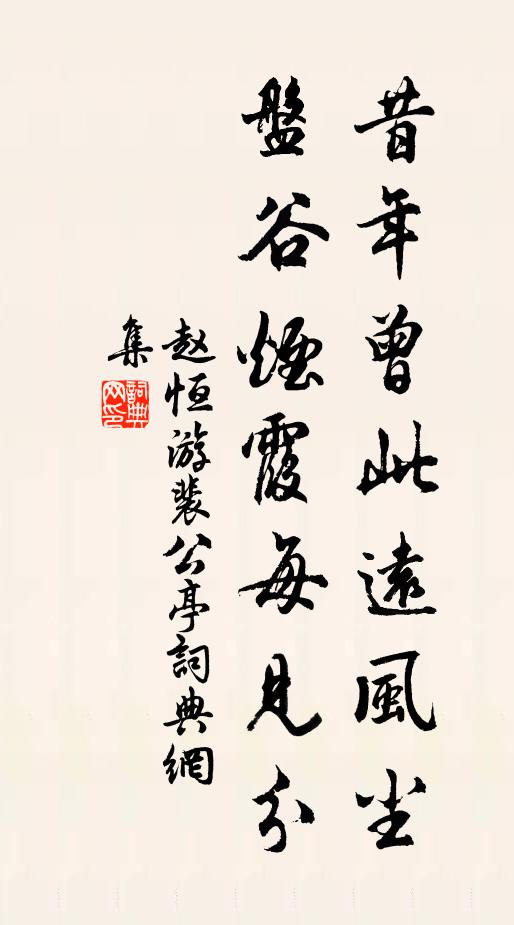 昔年曾此遠風尘
盤谷煙霞每見分
赵恒游裴公亭詞典網
集
詞典
网印